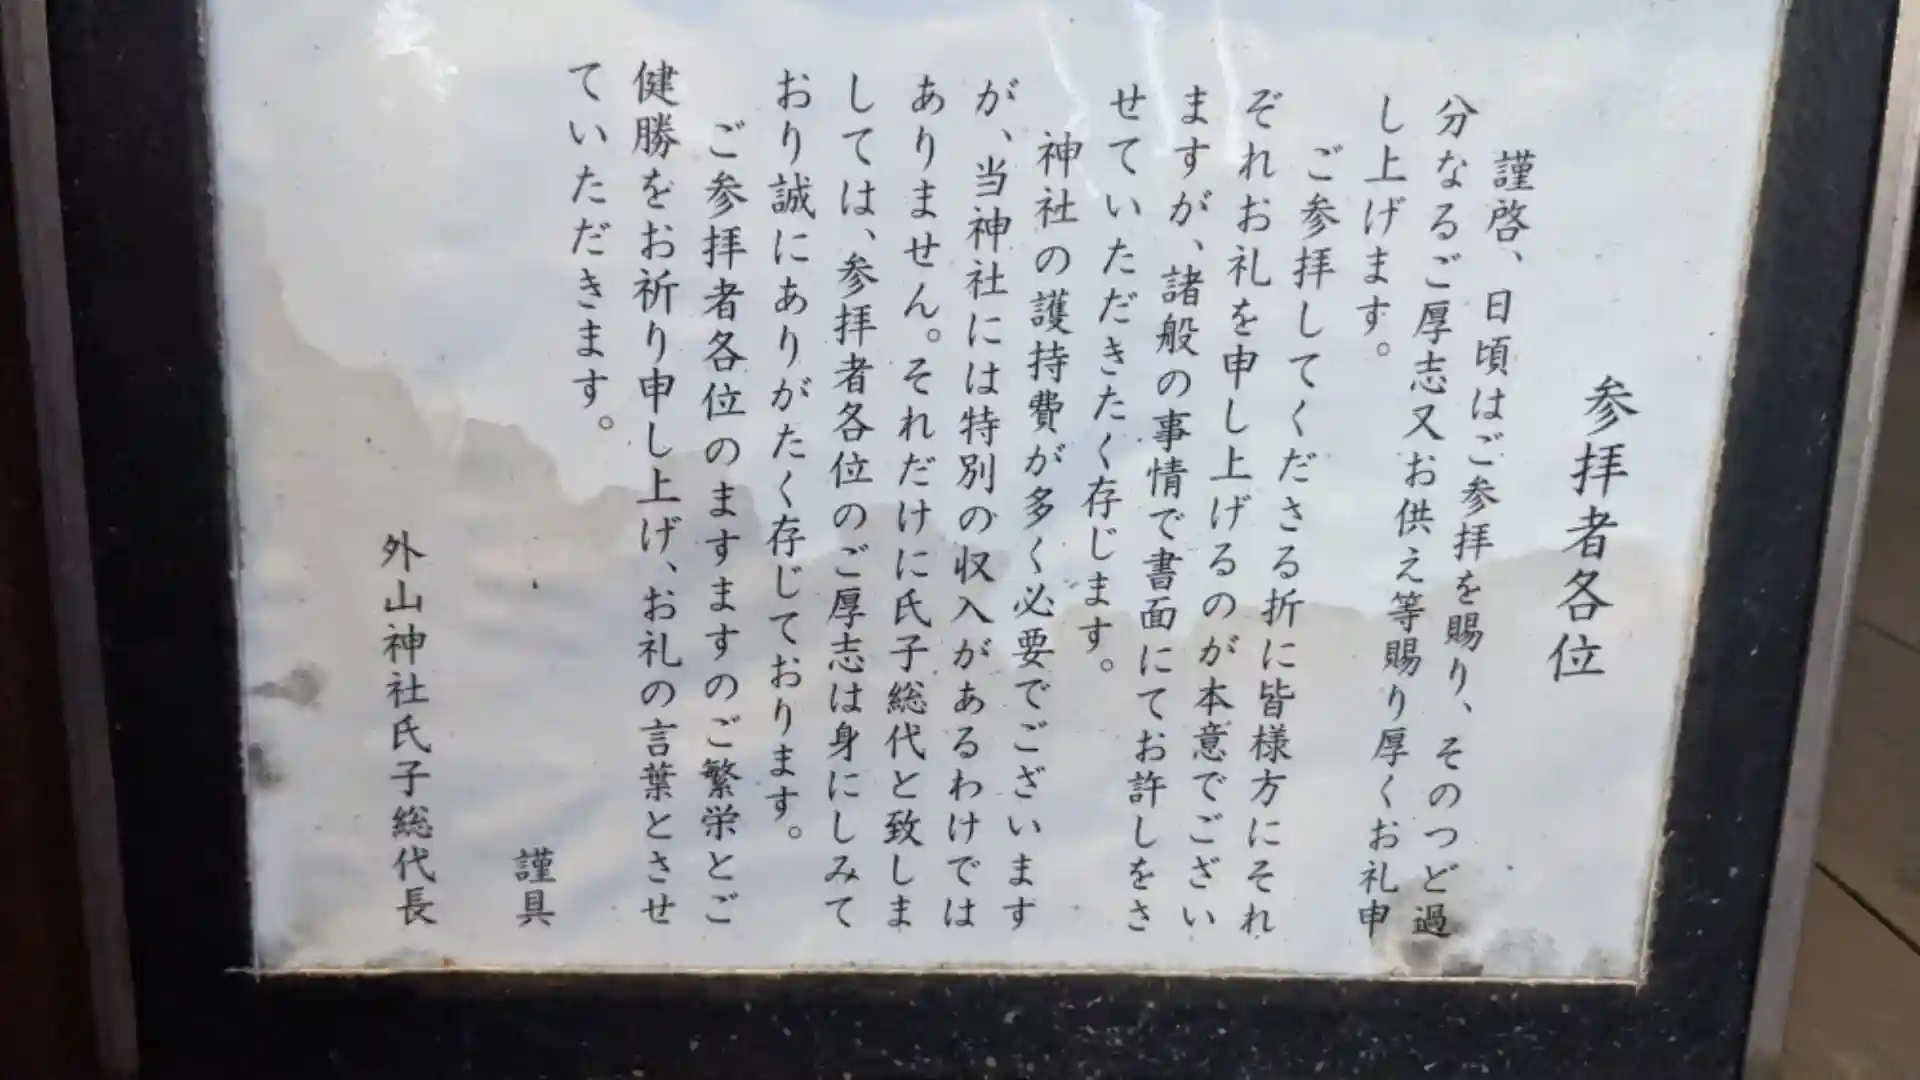 参拝者各位
謹啓、日頃はご参拝を賜り、そのつど過
分なるご厚志又お供え等賜り厚くお礼申
し上げます。
ご参拝してくださる折に皆様方にそれ
ぞれお礼を申し上げるのが本意でござい
ますが、諸般の事情で書面にてお許しをさ
せていただきたく存じます。
神社の護持費が多く必要でございます
が、当神社には特別の収入があるわけでは
ありません。それだけに氏子総代と致しま
しては、参拝者各位のご厚志は身にしみて
おり誠にありがたく存じております。
ご参拝者各位のますますのご繁栄とご
健勝をお祈り申し上げ、お礼の言葉とさせ
ていただきます。
謹具
外山神社氏子総代長